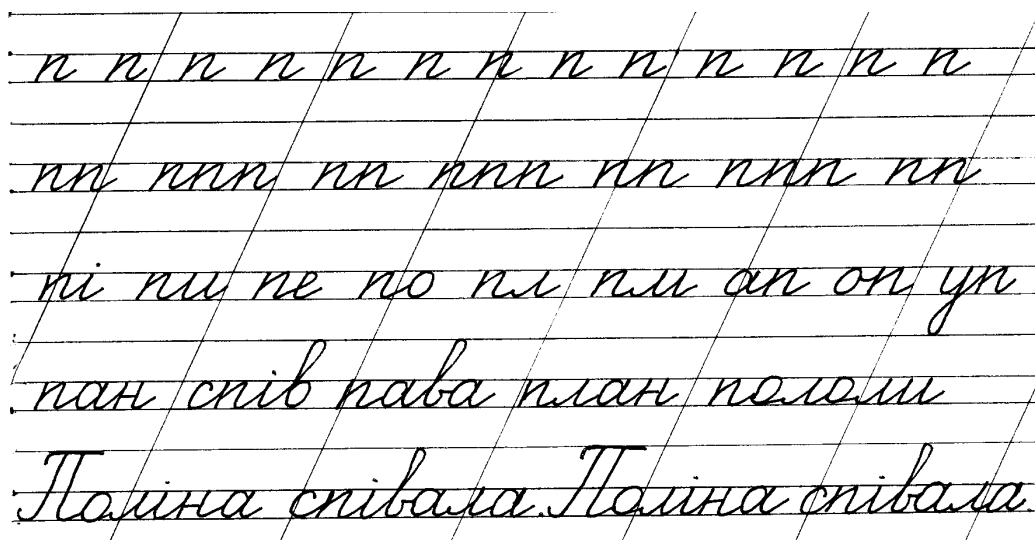 п п п п п п п п п п п п п
пп ппп пп ппп пп ппп пп
пі пи пе по пл пм ап оп уп
пан спів пава план пололи
Поліна співала. Поліна співала.